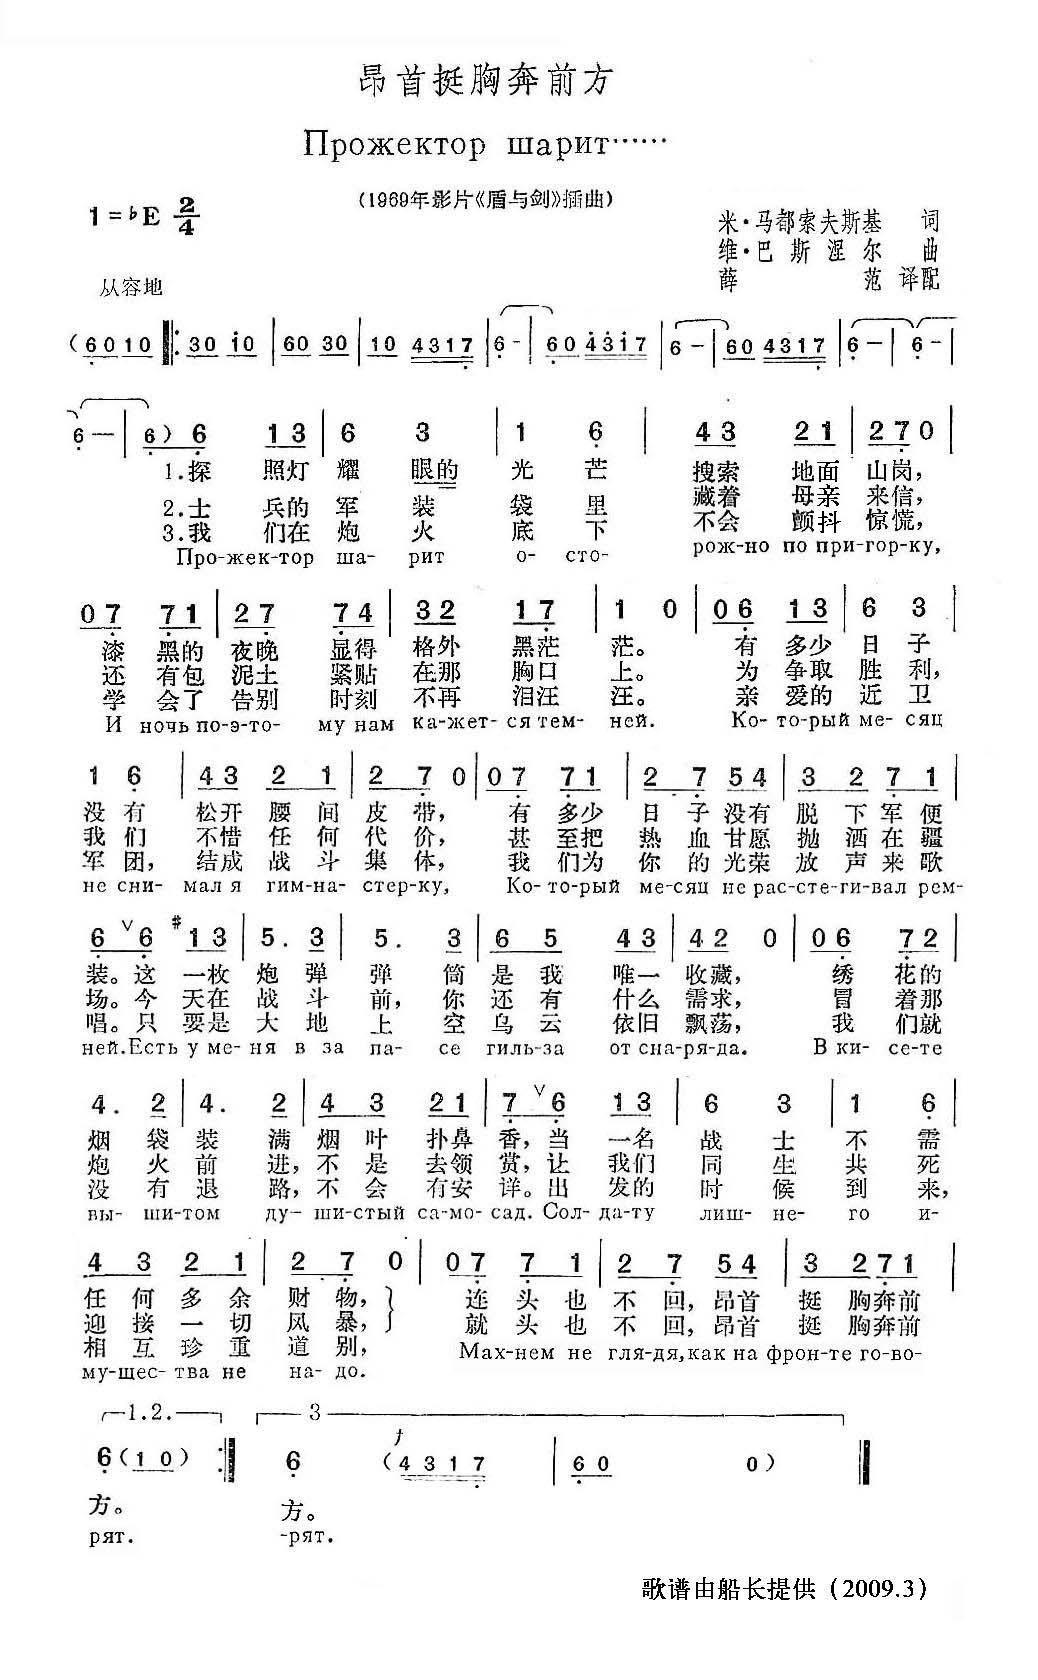 昂首挺胸奔前方
Прожектор шарит……
(1969年影片《盾与剑》插曲)
1=♭E 2/4
米·马都索夫斯基 词
维·巴斯涅尔 曲
薛 范 译配
从容地
(6010 ‖: 30 10 | 60 30 | 10 4317 | 6 - | 60 4317 | 6 - | 60 4317 | 6 - | 6 - |
6 — | 6) 6 13 | 6 3 | 1 6 | 43 21 | 2 7 0 |
1.探 照灯 耀 眼的 光 芒 搜索 地面 山岗,
2.士 兵的 军 装 袋 里 藏着 母亲 来信,
3.我 们在 炮 火 底 下 不会 颤抖 惊慌,
Про-жек-тор ша- рит о- сто- рож-но по при-гор-ку,
07 71 | 27 74 | 32 17 | 1 0 | 06 13 | 6 3 |
漆 黑的 夜晚 显得 格外 黑茫 茫。 有 多少 日 子
还 有包 泥土 紧贴 在那 胸口 上。 为 争取 胜 利,
学 会了 告别 时刻 不再 泪汪 汪。 亲 爱的 近 卫
И ночь по-э-то- му нам ка-жет-ся тем- ней. Ко- то-рый ме- сяц
1 6 | 43 2 1 | 2 7 0 | 07 71 | 2 7 54 | 3 2 7 1 |
没 有 松开 腰 间 皮 带, 有 多少 日 子 没有 脱 下 军 便
我 们 不惜 任 何 代 价, 甚 至把 热 血 甘愿 抛 洒 在 疆
军 团, 结成 战 斗 集 体, 我 们为 你 的 光荣 放 声 来 歌
не сни- мал я гим-на- стер-ку, Ко- то-рый ме-сяц не рас-сте-ги-вал рем-
6 ∨ 6 #13 | 5. 3 | 5. 3 | 6 5 43 | 42 0 | 06 72 |
装。这 一枚 炮 弹 弹 筒 是 我 唯一 收藏, 绣 花的
场。今 天在 战 斗 前, 你 还 有 什么 需求, 冒 着那
唱。只 要是 大 地 上 空 乌 云 依旧 飘荡, 我 们就
ней.Есть у ме- ня в за па- се гиль-за от сна-ря-да. В ки- се-те
4. 2 | 4. 2 | 4 3 21 | 7 ∨ 6 13 | 6 3 | 1 6 |
烟 袋 装 满 烟 叶 扑鼻 香, 当 一名 战 士 不 需
炮 火 前 进, 不 是 去领 赏, 让 我们 同 生 共 死
没 有 退 路, 不 会 有安 详。出 发的 时 候 到 来,
вы- ши-том ду- ши-стый са-мо- сад. Сол- да-ту лиш- не- го и-
4 3 2 1 | 2 7 0 | 07 7 1 | 2 7 54 | 3 271 |
任 何 多 余 财 物, 连 头 也 不 回, 昂首 挺 胸奔前
迎 接 一 切 风 暴, 就 头 也 不 回, 昂首 挺 胸奔前
相 互 珍 重 道 别,
Мах-нем не гля-дя, как на фрон-те го-во-
му-щес- тва не на- до.
1.2. 3
6 (10) :‖ 6 (4317 | 60 0) ‖
方。 方。
рят. -рят.
歌谱由船长提供(2009.3)